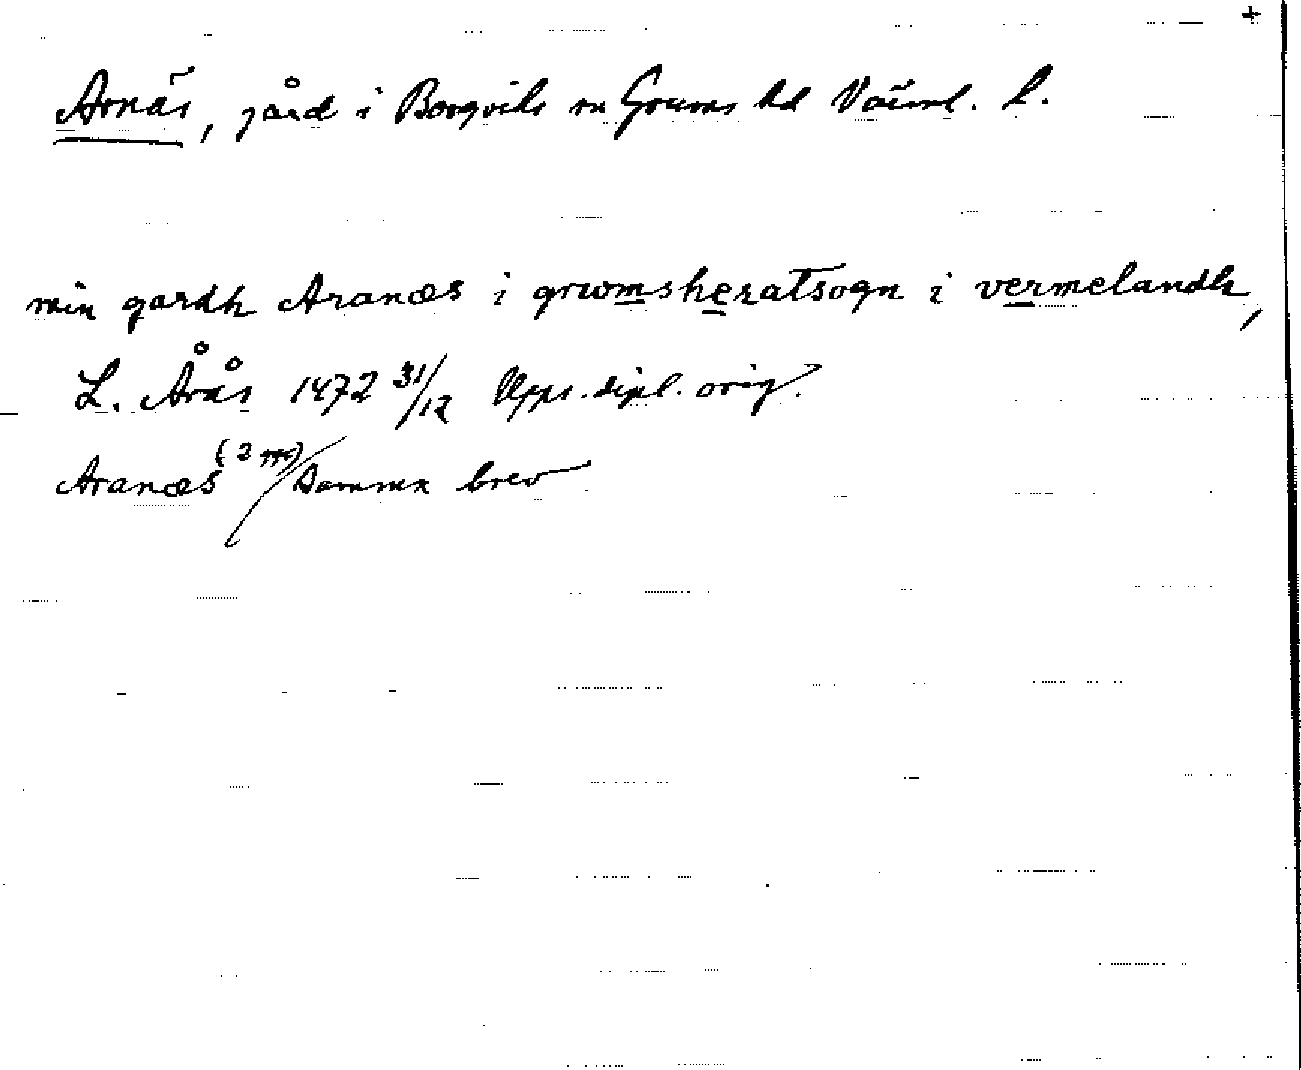 +
Arnäs, gård i Borgviks sn Grums hd Värml. L.
min gardh Aranæs i grwmsheratsogn i vermelandh,
L. Årås 1472 31/12 Upps. dipl. orig.
Aranæs (2 m) / Samma brev